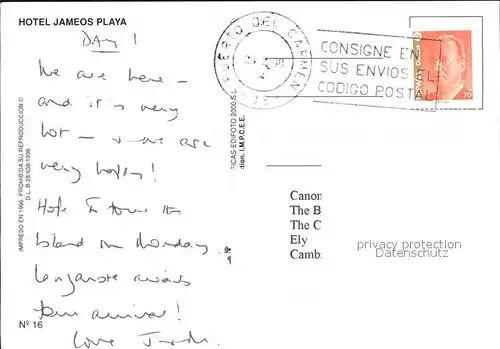 HOTEL JAMEOS PLAYA
DAY 1
We are here –
and it is very
hot – & we are
very happy!
Hope to tour the
Island on Monday.
Lanzarote awaits
your arrival!
Love
Nº 16
IMPRESO EN 1996. PROHIBIDA SU REPRODUCCION ©
D.L. B-28.638-1996
FICAS-EDIFOTO 2000,S.L.
tion. I.M.P.C.E.E.
PUERTO DEL CARMEN
CONSIGNE EN
SUS ENVIOS EL
CODIGO POSTAL
70
Canon
The B
The C
Ely
Camb
privacy protection
Datenschutz